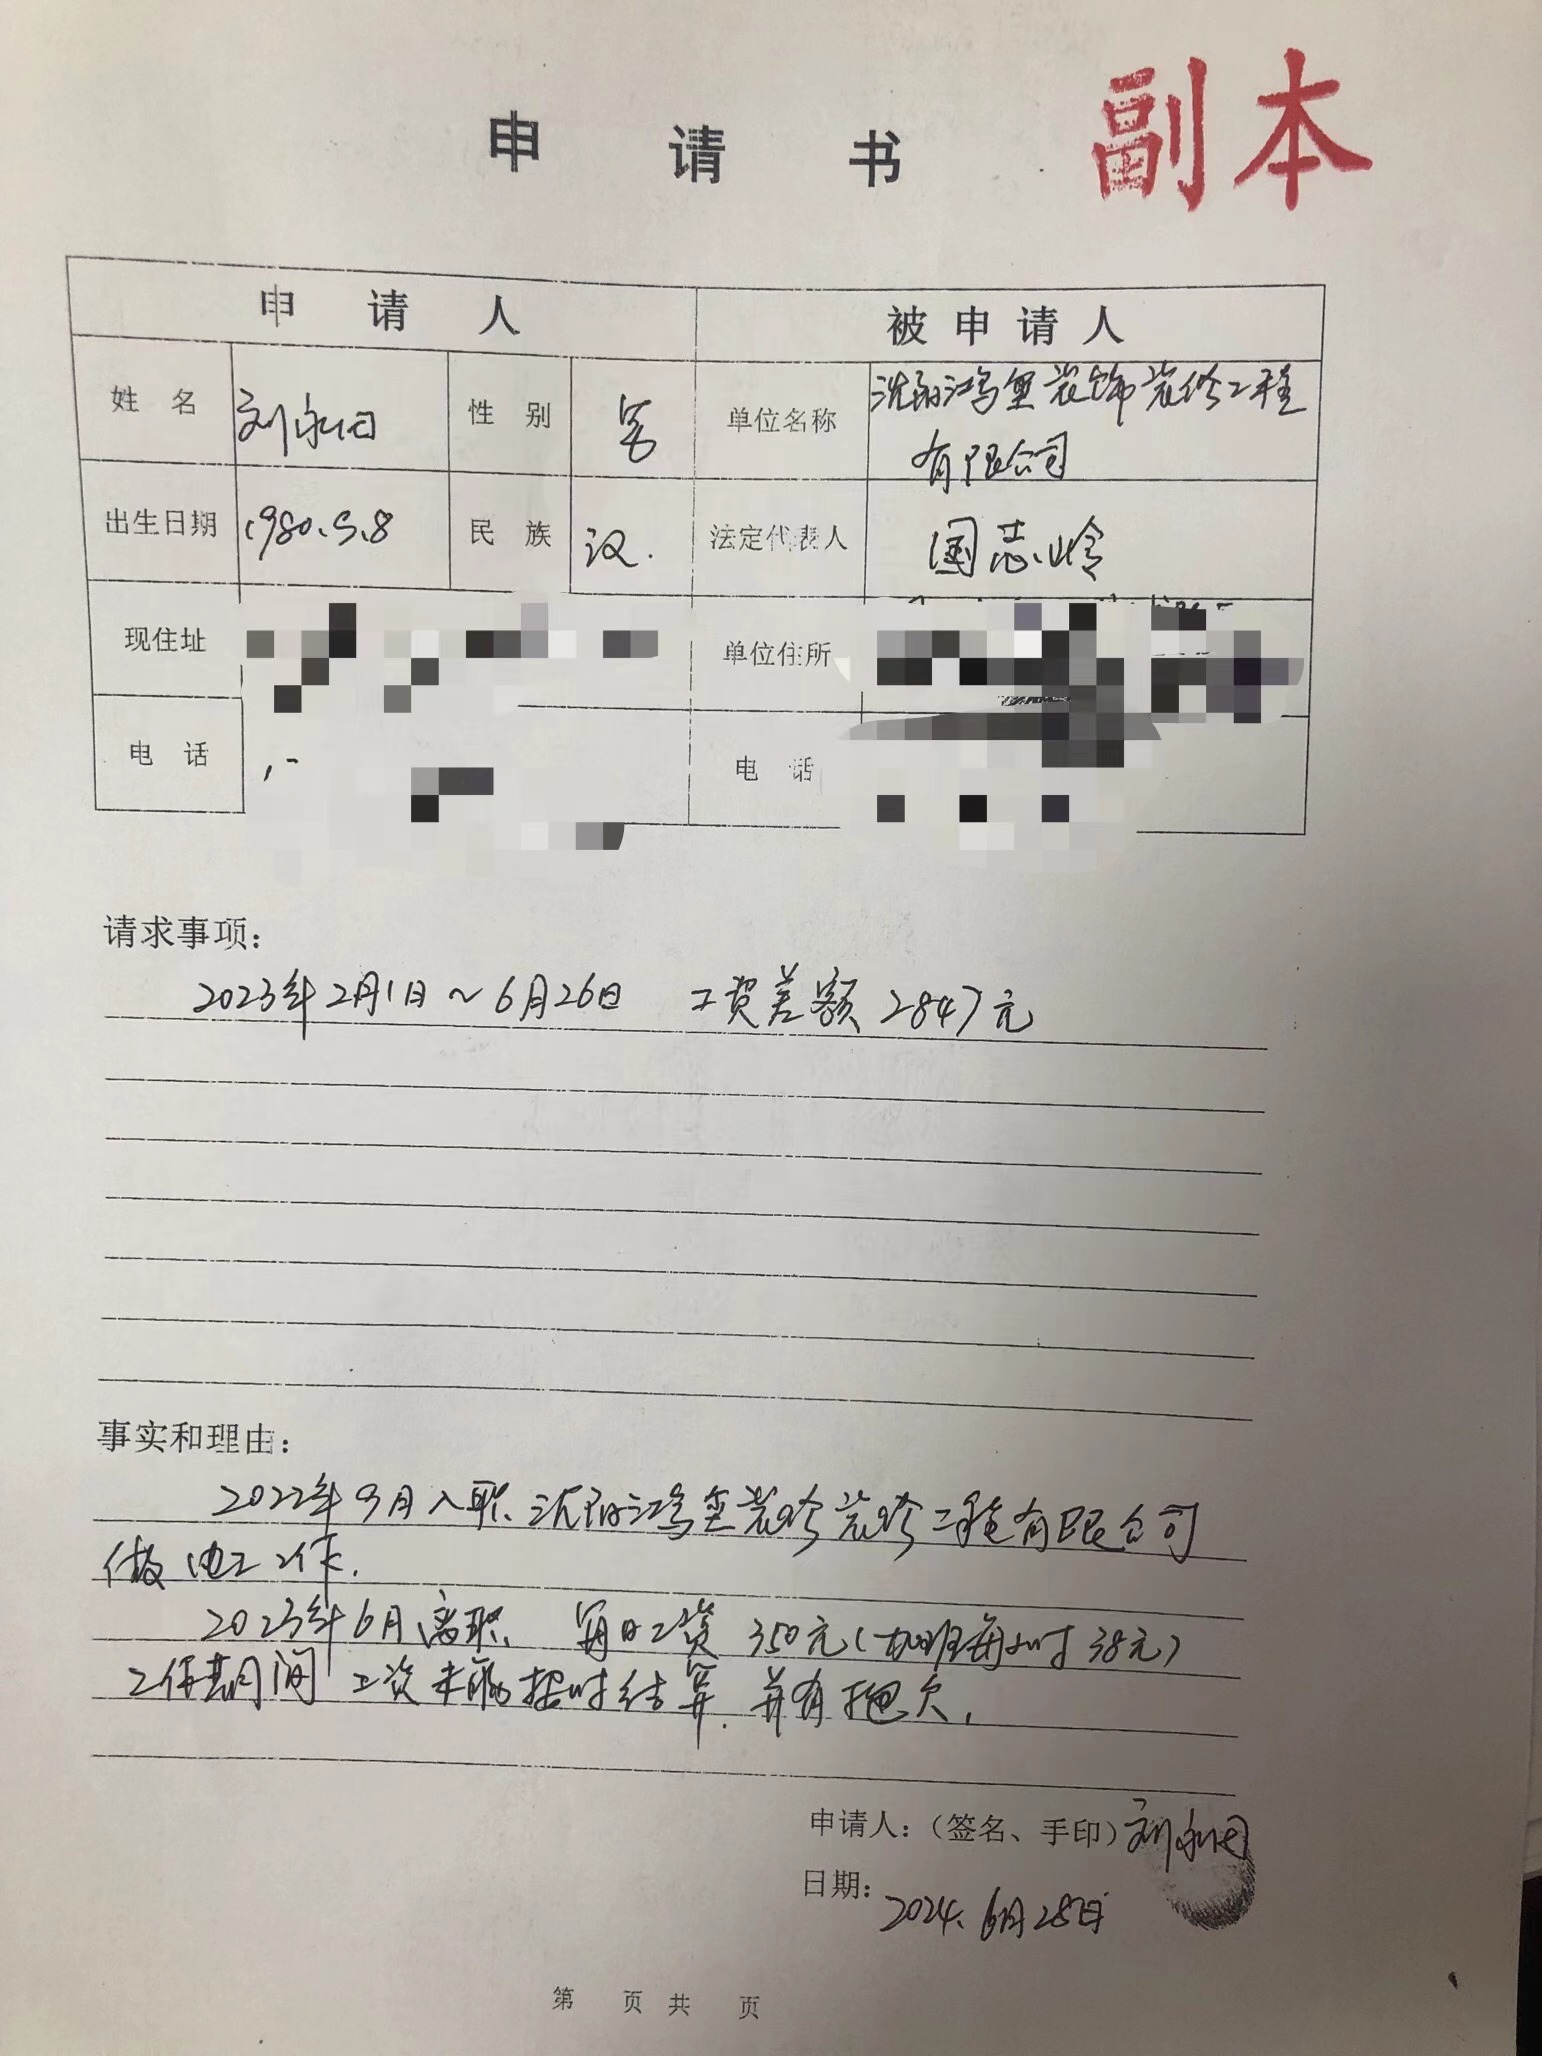 副本
申请书
申请人 被申请人
姓名 刘永 性别 男 单位名称 沈阳鸿玺装饰装修工程
有限公司
出生日期 1980.5.8 民族 汉. 法定代表人 国志岭
现住址 单位住所
电话 电话
请求事项:
2023年2月1日~6月26日 工资差额2847元
事实和理由:
2022年9月入职、沈阳鸿玺装修装修工程有限公司
做电工工作.
2023年6月离职、每日工资350元(加班每小时38元)
工作期间工资未能按时结算.并有拖欠.
申请人:(签名、手印)刘永
日期:2024.6月28日
第 页 共 页